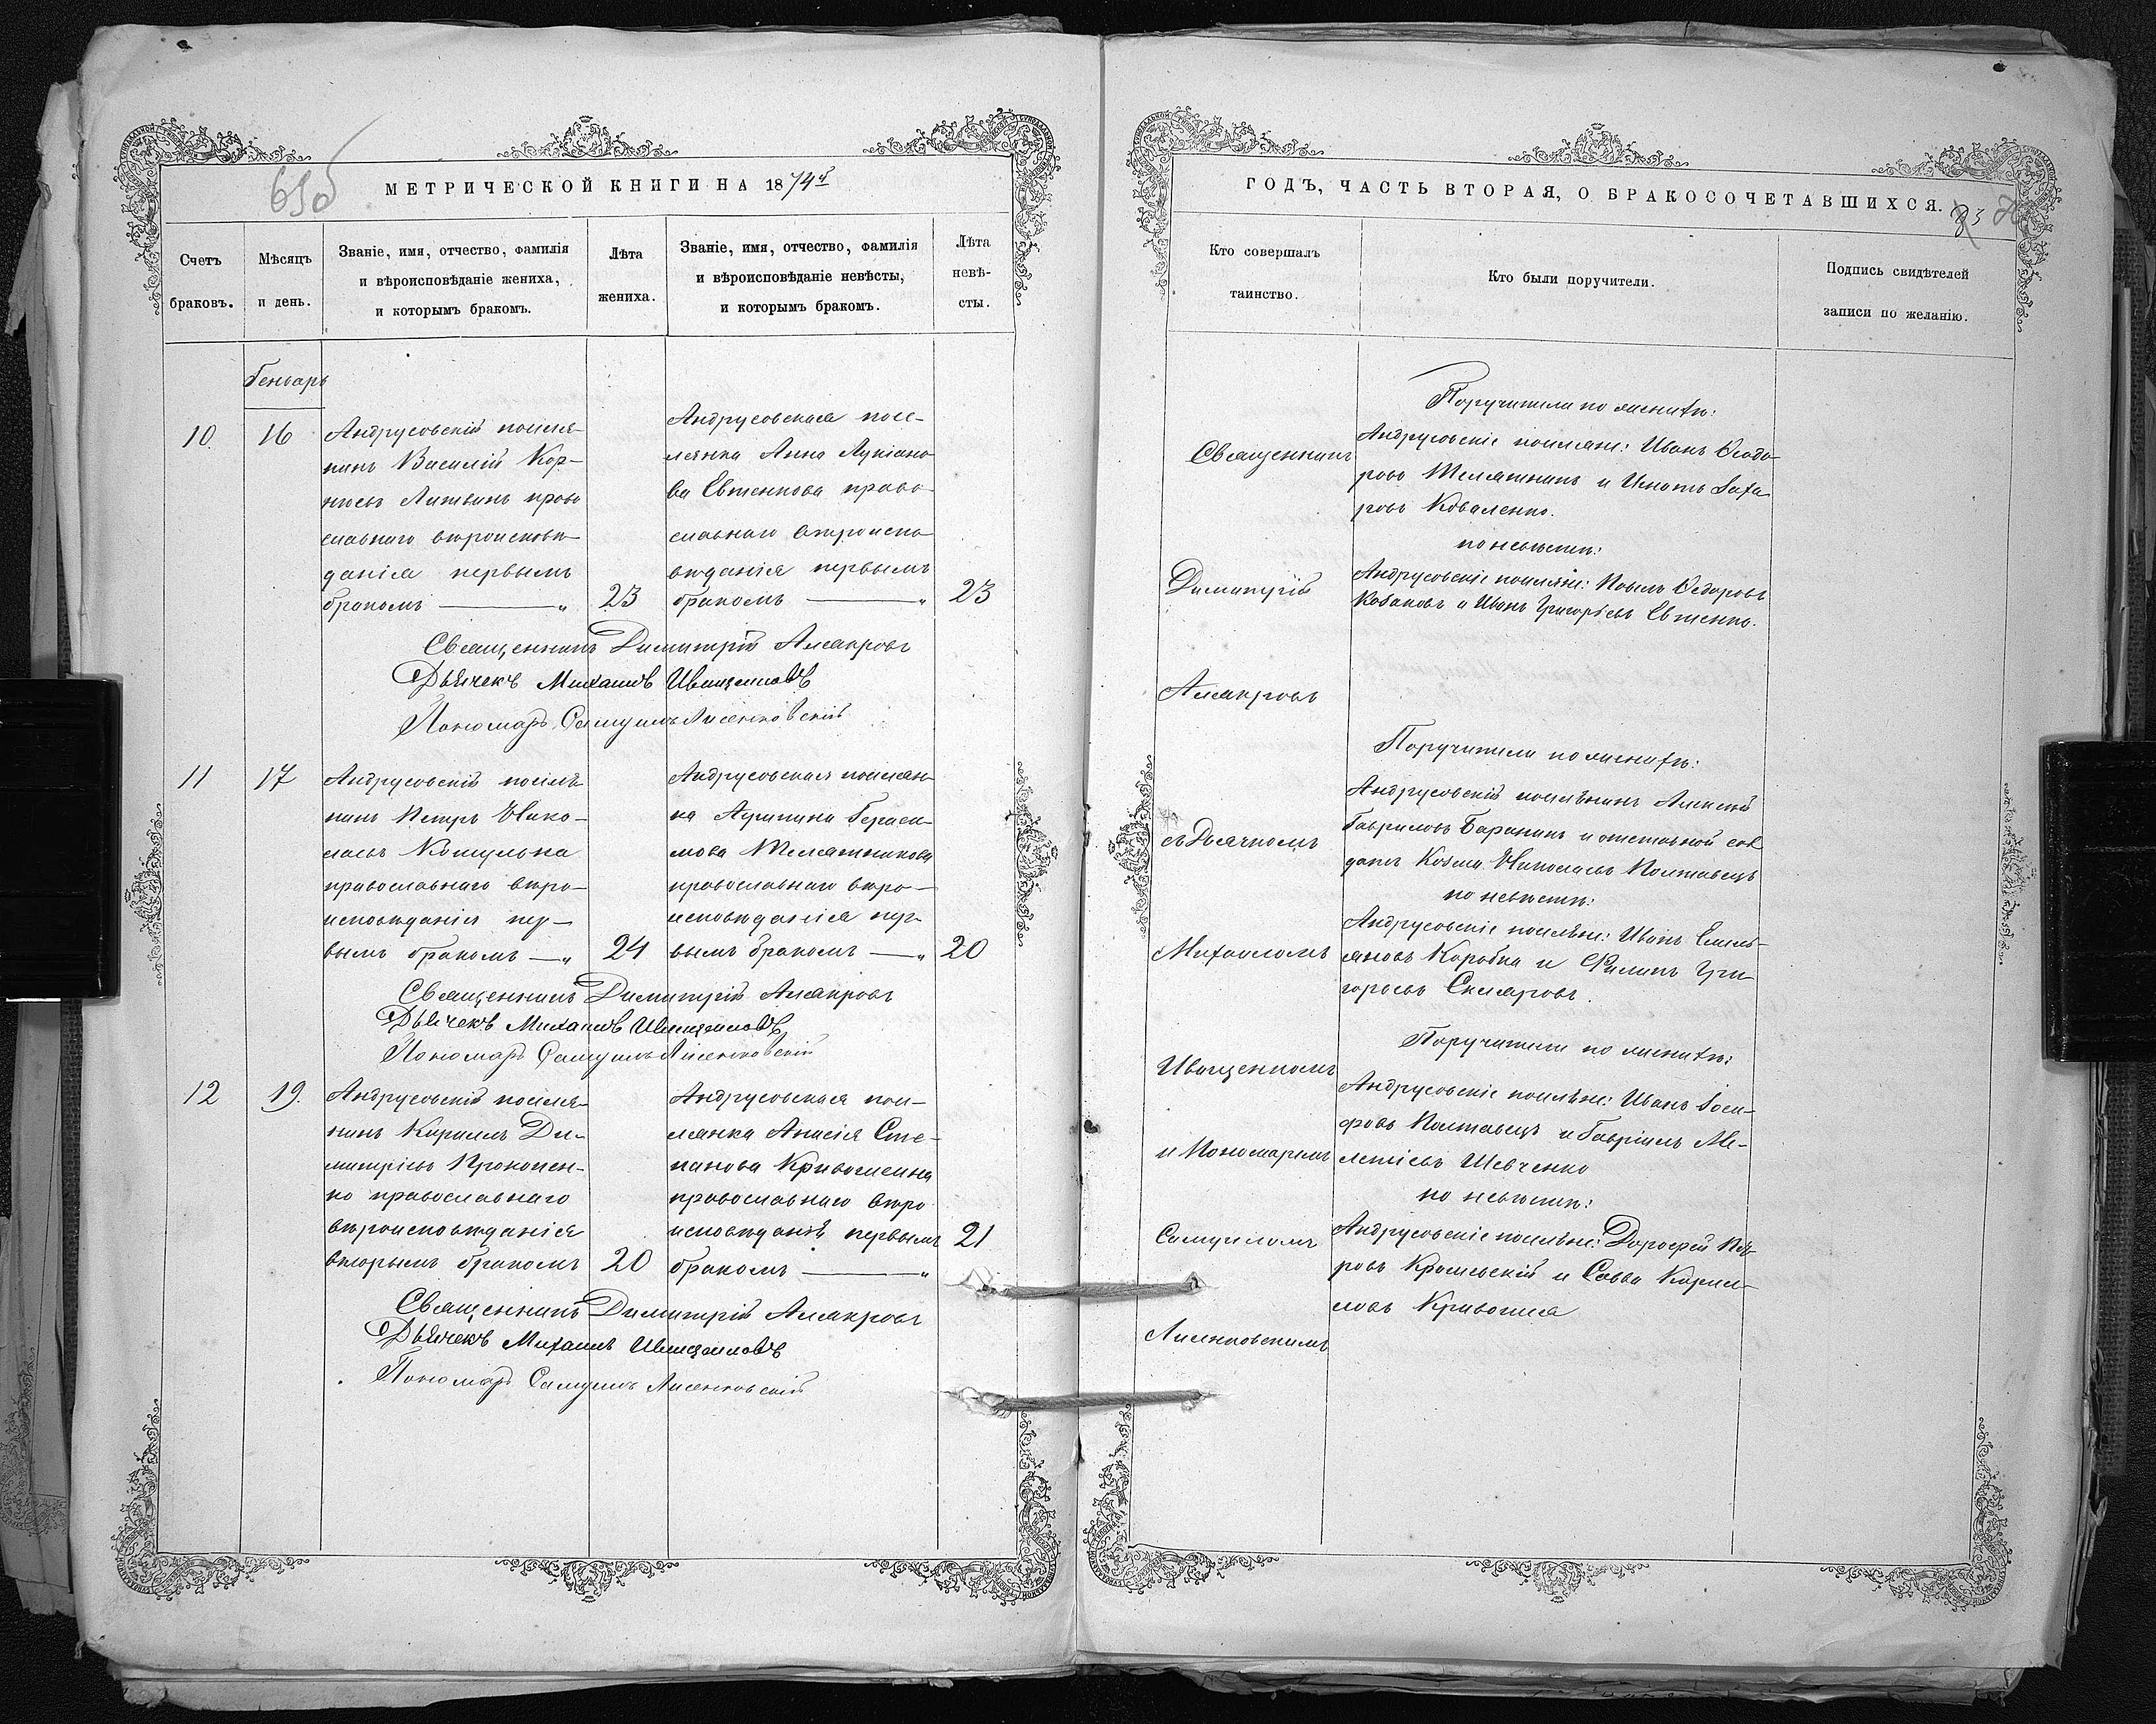 МЕТРИЧЕСКОЙ КНИГИ НА 1874й
Счетъ браковъ.
Мѣсяцъ и день.
Званіе, имя, отчество, фамилія
и вѣроисповѣданіе жениха,
и которымъ бракомъ.
Лѣта жениха.
Званіе, имя, отчество, фамилія
и вѣроисповѣданіе невѣсты,
и которымъ бракомъ.
Лѣта невѣ-
сты.
Генварь
10
16
Андрусовскій поселя-
нинъ Василій Кор-
нѣевъ Литвинъ право
славнаго вѣроисповѣ-
данія первымъ
бракомъ — „
23
Андрусовская посе-
лянка Анна Лукіано-
ва Евтенкова право-
славнаго вѣроиспо-
вѣданія первымъ
бракомъ — „
23
Священникъ Димитрій
Дьячекъ Михаилъ
Пономарь Самуилъ Лисенковскій
11
17
Андрусовскій поселя-
нинъ Петръ Нико-
лаевъ
православнаго вѣро-
исповѣданія пер-
вымъ бракомъ — „
24
Андрусовская поселян-
ка Агрипина Гераси-
мова Телятникова
православнаго вѣро-
исповѣданія пер-
вымъ бракомъ — „
20
Священникъ Димитрій
Дьячекъ Михаилъ
Пономарь Самуилъ Лисенковскій
12
19.
Андрусовскій поселя-
нинъ Кириллъ Ди-
митріевъ Прокопен-
ко православнаго
вѣроисповѣданія
вторымъ бракомъ
20
Андрусовская посе-
лянка Анисія Сте-
панова Кривошеина
православнаго вѣро
исповѣданія первымъ
бракомъ — „
21
Священникъ Димитрій
Дьячекъ Михаилъ
Пономарь Самуилъ Лисенковскій
ГОДЪ, ЧАСТЬ ВТОРАЯ, О БРАКОСОЧЕТАВШИХСЯ.
Кто совершалъ
таинство.
Кто были поручители.
Подпись свидѣтелей
записи по желанію.
Священникъ
Димитрій
съ Дьячкомъ
Михаиломъ
Иващенкомъ
и Пономаремъ
Самуиломъ
Лисенковскимъ
Поручители по женихѣ:
Андрусовскіе поселяне: Иванъ Ѳедо-
ровъ Телятникъ и Игнатъ Заха
ровъ Коваленко.
по невѣстѣ:
Андрусовскіе поселяне: Павелъ Ѳедоровъ
Казаковъ и Иванъ Григорьевъ Евтенко.
Поручители по женихѣ:
Андрусовскій поселянинъ Алексѣй
Гавриловъ Баранникъ и отставной сол
датъ Козма Николаевъ Полтавецъ
по невѣстѣ:
Андрусовскіе поселяне: Иванъ Емель-
яновъ Коробка и Филипъ Гри-
горьевъ Скляровъ.
Поручители по женихѣ:
Андрусовскіе поселяне: Иванъ Іоси-
фовъ Полтавецъ и Гавріилъ Ме-
летіевъ Шевченко
по невѣстѣ:
Андрусовскіе поселяне: Дорофей Пет-
ровъ и Савва Кирил-
ловъ Кривошея